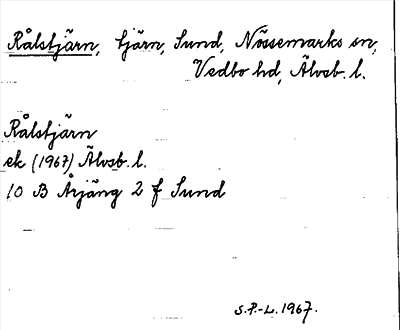 Rålstjärn, tjärn, Sund, Nössemarks sn,
Vedbo hd, Älvsb. l.
Rålstjärn
ek (1967) Älvsb. l.
10 B Årjäng 2 f Sund
S.P.-L. 1967.